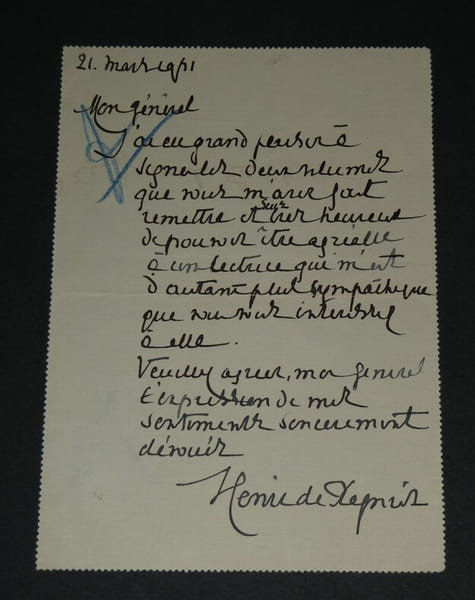 21. mars 1911
Mon général
J'ai eu grand plaisir à
signer les deux volumes
que vous m'avez fait
remettre et suis très heureux
de pouvoir être agréable
à une lectrice qui m'est
d'autant plus sympathique
que vous vous intéressez
à elle.
Veuillez agréer, mon général
l'expression de mes
sentiments sincèrement
dévoués
Henri de Régnier